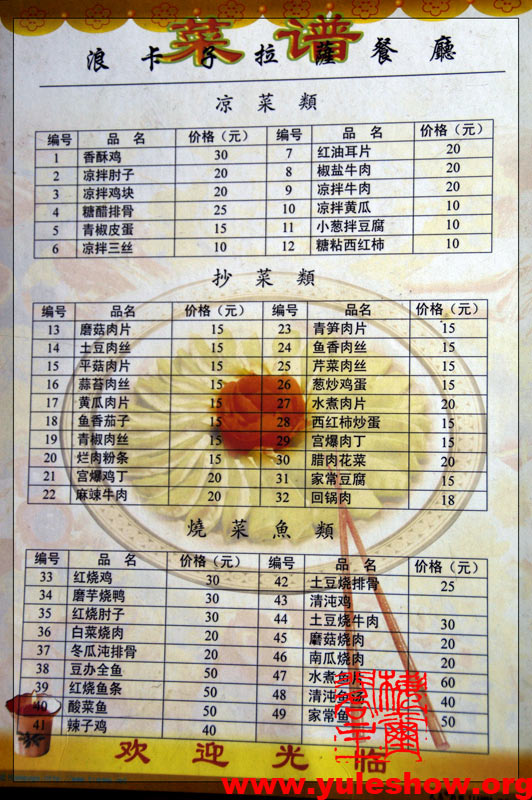 菜谱
浪卡子拉薩餐廳
凉菜類
编号 品名 价格（元） 编号 品名 价格（元）
1 香酥鸡 30 7 红油耳片 20
2 凉拌肘子 20 8 椒盐牛肉 20
3 凉拌鸡块 20 9 凉拌牛肉 20
4 糖醋排骨 25 10 凉拌黄瓜 10
5 青椒皮蛋 15 11 小葱拌豆腐 10
6 凉拌三丝 10 12 糖粘西红柿 10
抄菜類
编号 品名 价格（元） 编号 品名 价格（元）
13 磨菇肉片 15 23 青笋肉片 15
14 土豆肉丝 15 24 鱼香肉丝 15
15 平菇肉片 15 25 芹菜肉丝 15
16 蒜苔肉丝 15 26 葱炒鸡蛋 15
17 黄瓜肉片 15 27 水煮肉片 20
18 鱼香茄子 15 28 西红柿炒蛋 15
19 青椒肉丝 15 29 宫爆肉丁 15
20 烂肉粉条 15 30 腊肉花菜 20
21 宫爆鸡丁 20 31 家常豆腐 15
22 麻竦牛肉 20 32 回锅肉 18
燒菜魚類
编号 品名 价格（元） 编号 品名 价格（元）
33 红烧鸡 30 42 土豆烧排骨 25
34 磨芋烧鸭 30 43 清沌鸡
35 红烧肘子 30 44 土豆烧牛肉 30
36 白菜烧肉 20 45 磨菇烧肉 20
37 冬瓜沌排骨 20 46 南瓜烧肉 20
38 豆办全鱼 50 47 水煮鱼片 60
39 红烧鱼条 50 48 清沌鱼汤 40
40 酸菜鱼 50 49 家常鱼 50
41 辣子鸡 40
欢迎光临
www.yuleshow.org